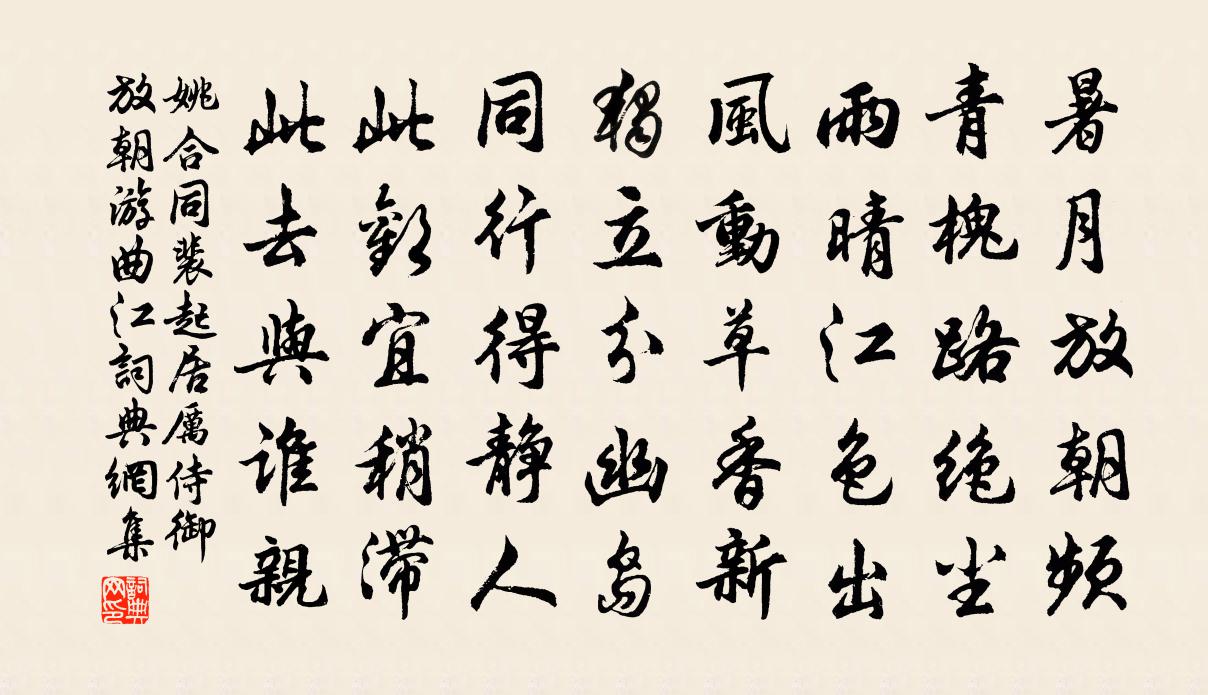 暑月放朝頻
青槐路绝尘
雨晴江色出
風動草香新
獨立分幽岛
同行得靜人
此歡宜稍滯
此去與誰親
姚合同裴起居厲侍御
放朝游曲江詞典網集
詞典网印